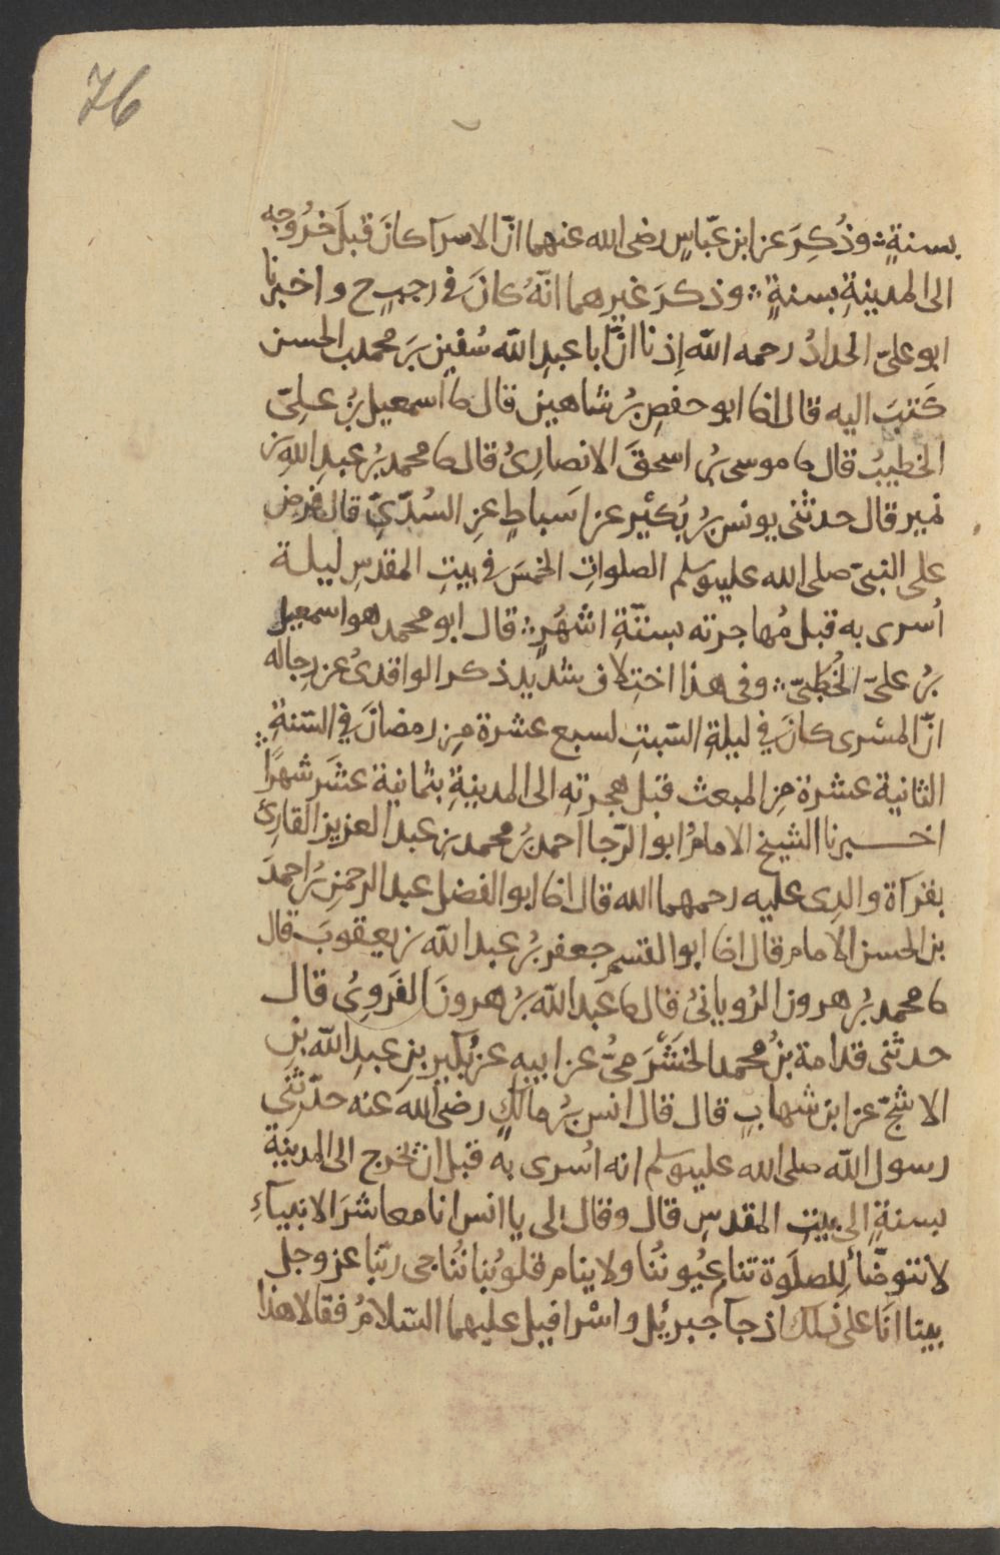 76
بسنةٍ ∴ وذُكِرَ عن ابن عبّاسٍ رضى الله عنهما انّ الاسرآ كانَ قبلَ خرُوجه
الى المدينةِ بسنةٍ ∴ وذكرَ غيرهما انّهُ كانَ فى رجبٍ ح واخبرنا
ابو علىّ الحدادُ رحمه الله إذنا انّ ابا عبدِ الله سُفين بَن محمد بن الحسن
كَتبَ اليه قال انا ابو حفصِ بنُ شاهين قال نا اسمعيل بنُ علىّ
الخطيبُ قال نا موسى بنُ اسحقَ الانصارىُ قال نا محمد بنُ عبدِ اللهِ بن
نمير قال حدثنى يونس بنُ بُكَيْر عن اَسباطٍ عنِ السُدّىِّ قال فرض
على النبىّ صلى الله عليه وسلم الصلواتِ الخمسَ فى بيتِ المقدسِ ليلة
اُسرى به قبل مُهاجرته بستّةِ اشهُرٍ ∴ قال ابو محمد هو اسمعيل
بنُ علىّ الخُطَبىّ ∴ وفى هذا اختِلاف شديد ذكر الواقدىُ عن رجاله
انّ المسْرى كانَ فى ليلةِ السّبتِ لسبع عشرة مِن رمضانَ فى السّنةِ
الثانية عشرة مِن المبعث قبل هجرتهِ الى المدينةِ بثمانية عشَر شهرًا ∴
اخبرنا الشيخ الامامُ ابو الرّجا احمد بنُ محمد بن عبد العزيز القارِئُ
بقرآة والدِى عليه رحمهما الله قال انا ابو الفضل عبد الرحمن بنُ احمدَ
بن الحسن الامام قال انا ابو القسم جعفر بنُ عبد الله بن يعقوبَ قال
نا محمد بنُ هرون الرُويانىُ قال نا عَبد الله بنُ هرونَ الفَروِىُ قال
حدثنى قدامة بنُ محمد الخَشْرَمىُّ عن ابيهِ عن بُكَيرِ بنِ عبدِ الله بنِ
الاشجّ عن ابن شهابٍ قال قال انس بنُ مالكٍ رضى الله عنه حدّثنى
رسول الله صلى الله عليه وسلم انه اُسرى به قبل ان يخرج الى المدينةِ
بسنةٍ الى بيتِ المقدسِ قال وقال لى يا انس انا معاشرَ الانبيآءِ
لا نتوضّأ لِلصلَوة تنام عيُوننُا ولا ينام قلوُبُنا نُناجى ربّنا عز وجل
بينا انَا على ذلك اذ جآ جبرئيل واسْرافيل عليهما السّلامُ فقالا هذا